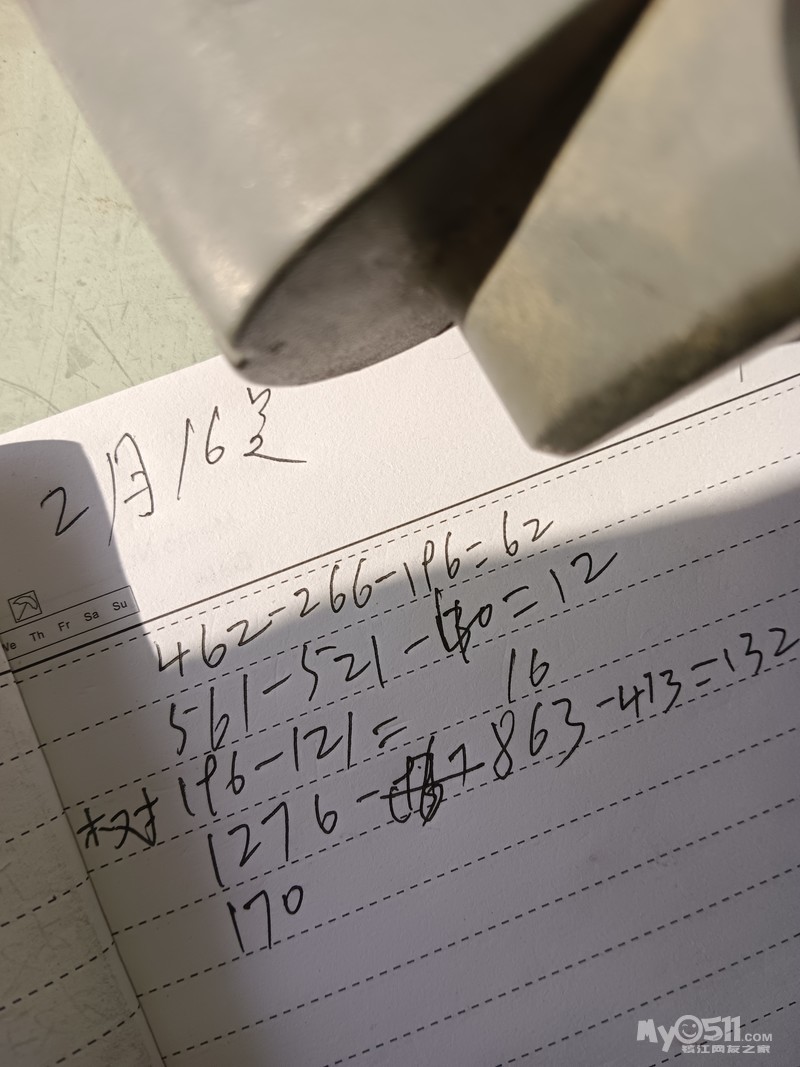 2月16号
We Th Fr Sa Su
462-266-196=62
561-521-130=12
树196-121= 16
1276- 863-413=132
170
MyO511.COM
镇江网友之家